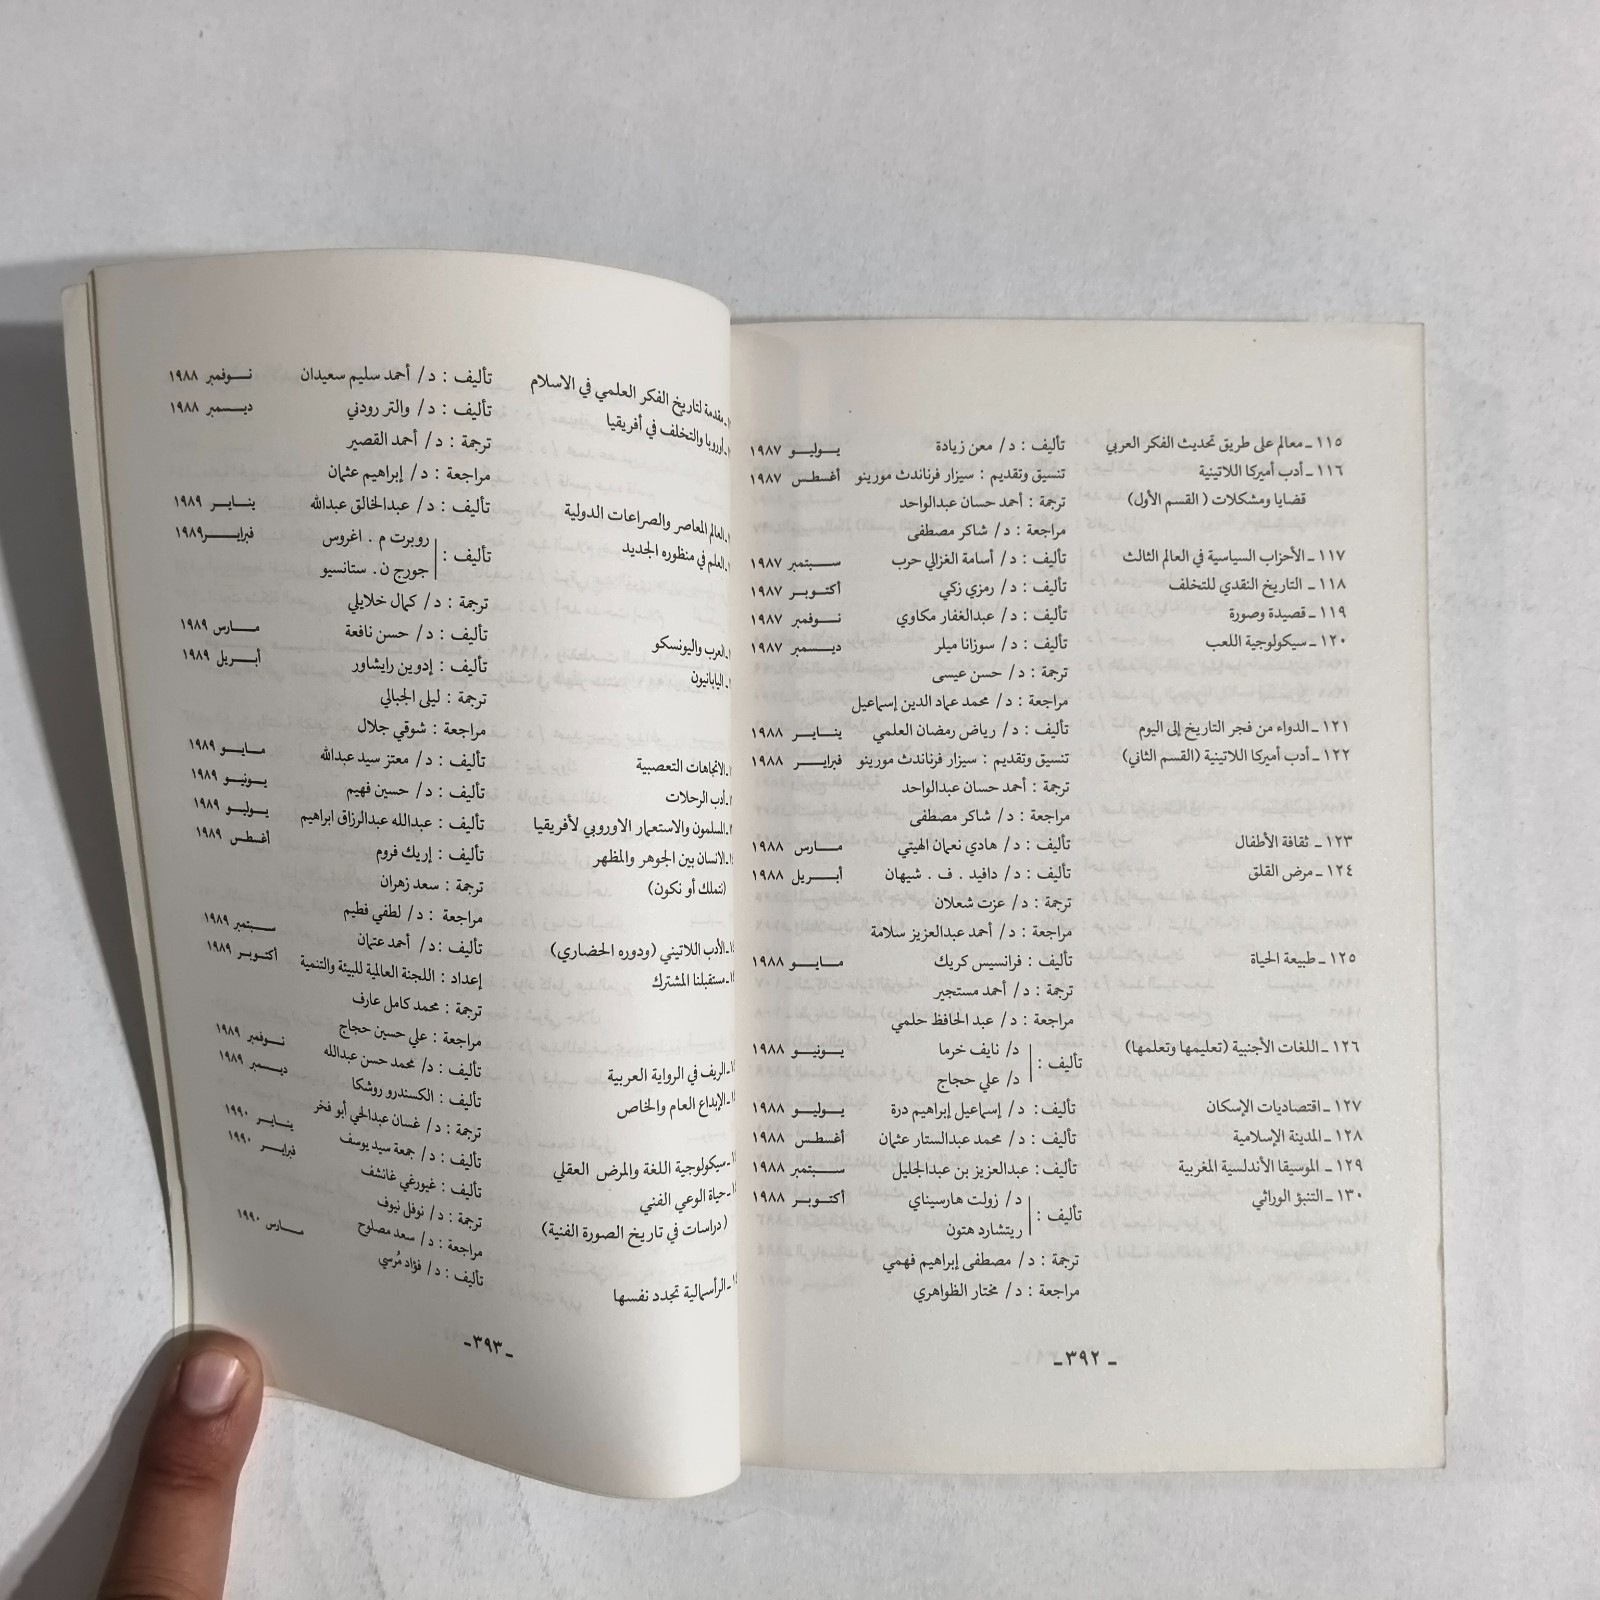 ١١٥ ـ معالم على طريق تحديث الفكر العربي تأليف : د/ معن زيادة يوليو ١٩٨٧
١١٦ ـ أدب أميركا اللاتينية تنسيق وتقديم : سيزار فرناندث مورينو أغسطس ١٩٨٧
قضايا ومشكلات ( القسم الأول) ترجمة : أحمد حسان عبدالواحد
مراجعة : د/ شاكر مصطفى
١١٧ ـ الأحزاب السياسية في العالم الثالث تأليف : د/ أسامة الغزالي حرب سبتمبر ١٩٨٧
١١٨ ـ التاريخ النقدي للتخلف تأليف : د/ رمزي زكي أكتوبر ١٩٨٧
١١٩ ـ قصيدة وصورة تأليف : د/ عبدالغفار مكاوي نوفمبر ١٩٨٧
١٢٠ ـ سيكولوجية اللعب تأليف : د/ سوزانا ميلر ديسمبر ١٩٨٧
ترجمة : د/ حسن عيسى
مراجعة : د/ محمد عماد الدين إسماعيل
١٢١ ـ الدواء من فجر التاريخ إلى اليوم تأليف : د/ رياض رمضان العلمي يناير ١٩٨٨
١٢٢ ـ أدب أميركا اللاتينية (القسم الثاني) تنسيق وتقديم : سيزار فرناندث مورينو فبراير ١٩٨٨
ترجمة : أحمد حسان عبدالواحد
مراجعة : د/ شاكر مصطفى
١٢٣ ـ ثقافة الأطفال تأليف : د/ هادي نعمان الهيتي مارس ١٩٨٨
١٢٤ ـ مرض القلق تأليف : د/ دافيد . ف . شيهان أبريل ١٩٨٨
ترجمة : د/ عزت شعلان
مراجعة : د/ أحمد عبدالعزيز سلامة
١٢٥ ـ طبيعة الحياة تأليف : فرانسيس كريك مايو ١٩٨٨
ترجمة : د/ أحمد مستجير
مراجعة : د/ عبد الحافظ حلمي
١٢٦ ـ اللغات الأجنبية (تعليمها وتعلمها) تأليف : د/ نايف خرما يونيو ١٩٨٨
د/ علي حجاج
١٢٧ ـ اقتصاديات الإسكان تأليف : د/ إسماعيل إبراهيم درة يوليو ١٩٨٨
١٢٨ ـ المدينة الإسلامية تأليف : د/ محمد عبدالستار عثمان أغسطس ١٩٨٨
١٢٩ ـ الموسيقا الأندلسية المغربية تأليف : عبدالعزيز بن عبدالجليل سبتمبر ١٩٨٨
١٣٠ ـ التنبؤ الوراثي تأليف : د/ زولت هارسيناي أكتوبر ١٩٨٨
ريتشارد هتون
ترجمة : د/ مصطفى إبراهيم فهمي
مراجعة : د/ مختار الظواهري
ـ ٣٩٢ ـ
ـ مقدمة لتاريخ الفكر العلمي في الاسلام تأليف : د/ أحمد سليم سعيدان نوفمبر ١٩٨٨
ـ أوروبا والتخلف في أفريقيا تأليف : د/ والتر رودني ديسمبر ١٩٨٨
ترجمة : د/ أحمد القصير
مراجعة : د/ إبراهيم عثمان
ـ العالم المعاصر والصراعات الدولية تأليف : د/ عبدالخالق عبدالله يناير ١٩٨٩
ـ العلم في منظوره الجديد تأليف : روبرت م . اغروس فبراير ١٩٨٩
جورج ن . ستانسيو
ترجمة : د/ كمال خلايلي
ـ العرب واليونسكو تأليف : د/ حسن نافعة مارس ١٩٨٩
ـ اليابانيون تأليف : إدوين رايشاور أبريل ١٩٨٩
ترجمة : ليلى الجبالي
مراجعة : شوقي جلال
ـ الاتجاهات التعصبية تأليف : د/ معتز سيد عبدالله مايو ١٩٨٩
ـ أدب الرحلات تأليف : د/ حسين فهيم يونيو ١٩٨٩
ـ المسلمون والاستعمار الاوروبي لأفريقيا تأليف : عبدالله عبدالرزاق ابراهيم يوليو ١٩٨٩
ـ الانسان بين الجوهر والمظهر تأليف : إريك فروم أغسطس ١٩٨٩
(نتملك أو نكون) ترجمة : سعد زهران
مراجعة : د/ لطفي فطيم
ـ الأدب اللاتيني (ودوره الحضاري) تأليف : د/ أحمد عتمان سبتمبر ١٩٨٩
ـ مستقبلنا المشترك إعداد : اللجنة العالمية للبيئة والتنمية أكتوبر ١٩٨٩
ترجمة : محمد كامل عارف
مراجعة : علي حسين حجاج
ـ الريف في الرواية العربية تأليف : د/ محمد حسن عبدالله نوفمبر ١٩٨٩
ـ الإبداع العام والخاص تأليف : الكسندرو روشكا ديسمبر ١٩٨٩
ترجمة : د/ غسان عبدالحي أبو فخر
ـ سيكولوجية اللغة والمرض العقلي تأليف : د/ جمعة سيد يوسف يناير ١٩٩٠
ـ حياة الوعي الفني تأليف : غيورغي غاتشف فبراير ١٩٩٠
(دراسات في تاريخ الصورة الفنية) ترجمة : د/ نوفل نيوف
مراجعة : د/ سعد مصلوح
ـ الرأسمالية تجدد نفسها تأليف : د/ فؤاد مُرسي مارس ١٩٩٠
ـ ٣٩٣ ـ